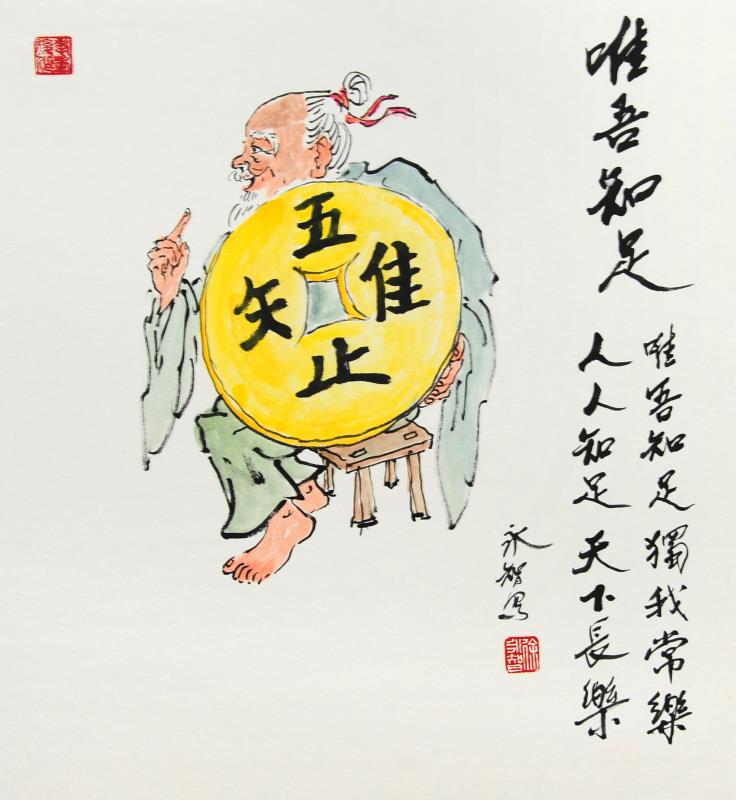 唯吾知足
唯吾知足 獨我常樂
人人知足 天下長樂
永智写
徐永智
五
隹
止
矢